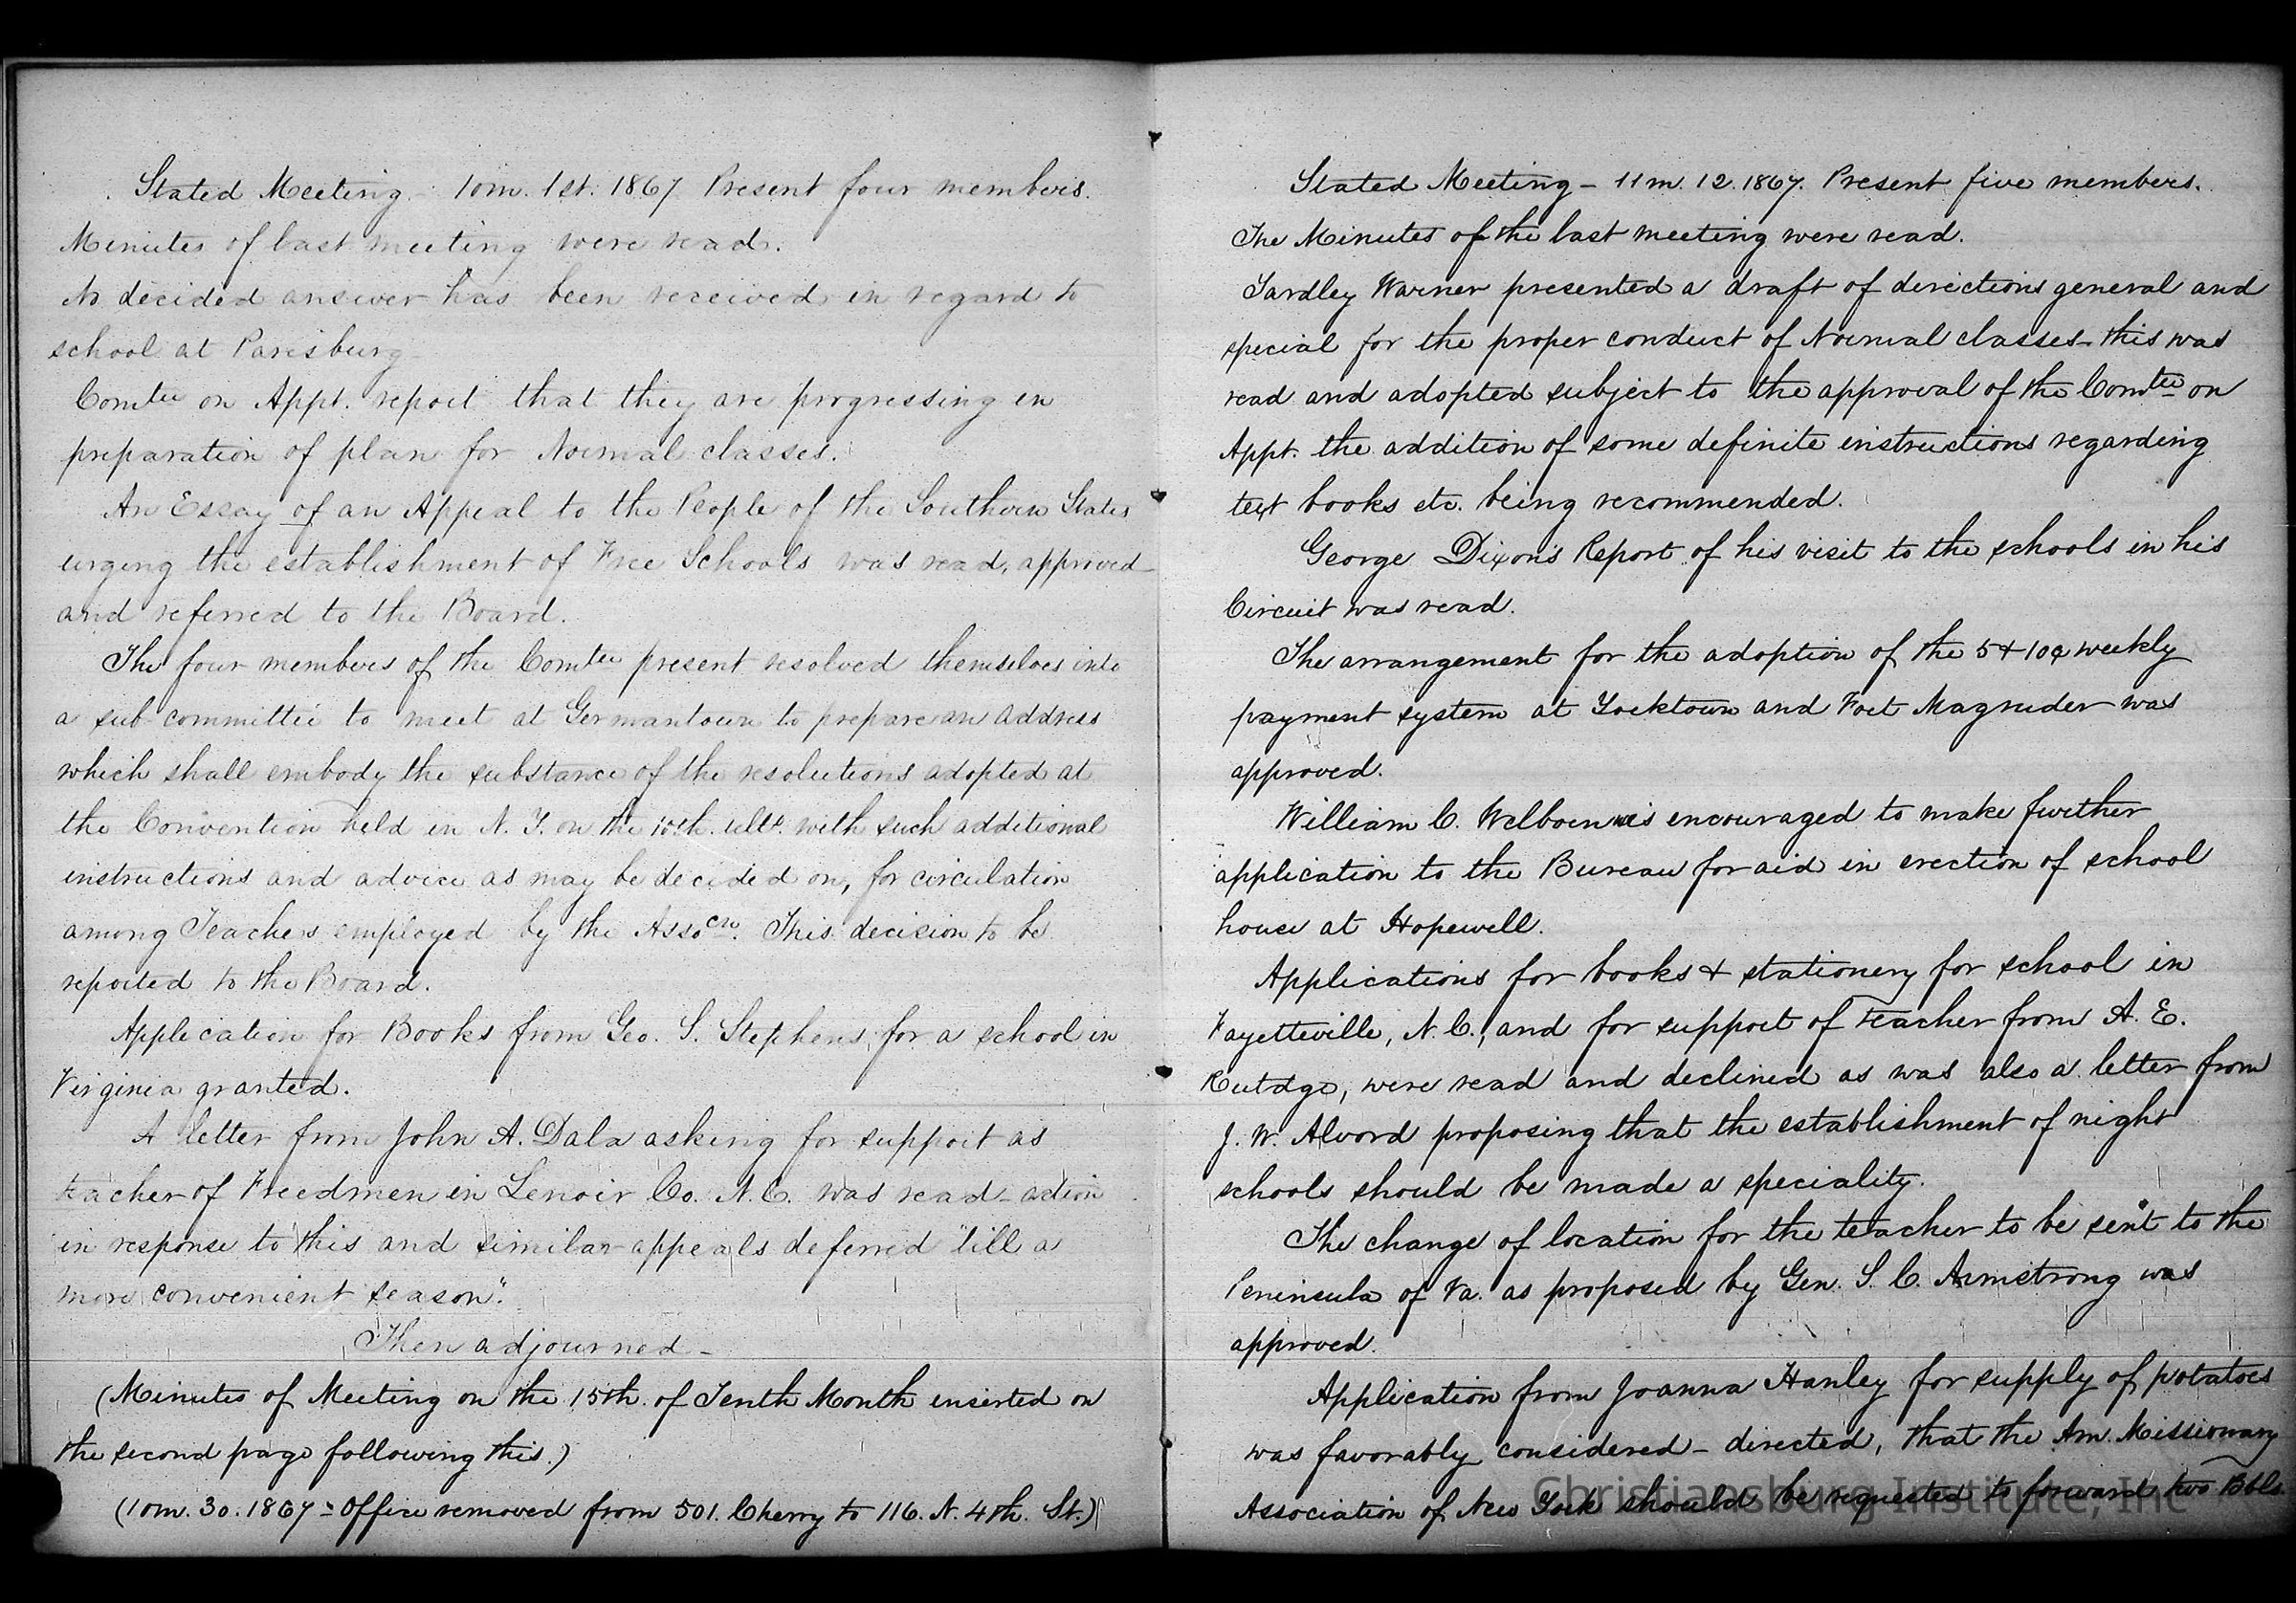 Stated Meeting. 10m. 1st. 1867 Present four members.
Minutes of last meeting were read.
No decided answer has been received in regard to
school at Parisburg
Comtee on Appt. report that they are progressing in
preparation of plan for Normal classes.
An Essay of an Appeal to the People of the Southern States
urging the establishment of Free Schools was read, approved
and referred to the Board.
The four members of the Comtee present resolved themselves into
a sub-committee to meet at Germantown to prepare an address
which shall embody the substance of the resolutions adopted at
the Convention held in N. Y. on the 10th. ult. with such additional
instructions and advice as may be decided on, for circulation
among Teachers employed by the Assocn. This decision to be
reported to the Board.
Application for Books from Geo. S. Stephens, for a school in
Virginia granted.
A letter from John A. Dala asking for support as
teacher of Freedmen in Lenoir Co. N.C. was read - action
in response to this and similar appeals deferred "till a
more convenient season".
Then adjourned -
(Minutes of Meeting on the 15th. of Tenth Month inserted on
the second page following this.)
(10m. 30. 1867 - Office removed from 501. Cherry to 116. N. 4th. St.)
Stated Meeting - 11m. 12. 1867. Present five members.
The Minutes of the last meeting were read.
Yardley Warner presented a draft of directions general and
special for the proper conduct of Normal classes - this was
read and adopted subject to the approval of the Comtee on
Appt. the addition of some definite instructions regarding
text books etc. being recommended.
George Dixon's Report of his visit to the schools in his
Circuit was read.
The arrangement for the adoption of the 5 & 10¢ weekly
payment system at Yorktown and Fort Magruder was
approved.
William C. Welborn is encouraged to make further
application to the Bureau for aid in erection of school
house at Hopewell.
Applications for books & stationery for school in
Fayetteville, N.C., and for support of teacher from A. E.
were read and declined as was also a letter from
J. W. Alvord proposing that the establishment of night
schools should be made a speciality.
The change of location for the teacher to be sent to the
Peninsula of Va. as proposed by Gen. S. C. Armstrong was
approved.
Application from Joanna Hanley for supply of potatoes
was favorably considered - directed, that the Am. Missionary
Association of New York should be requested to forward two Bbls.
Christiansburg Institute, Inc